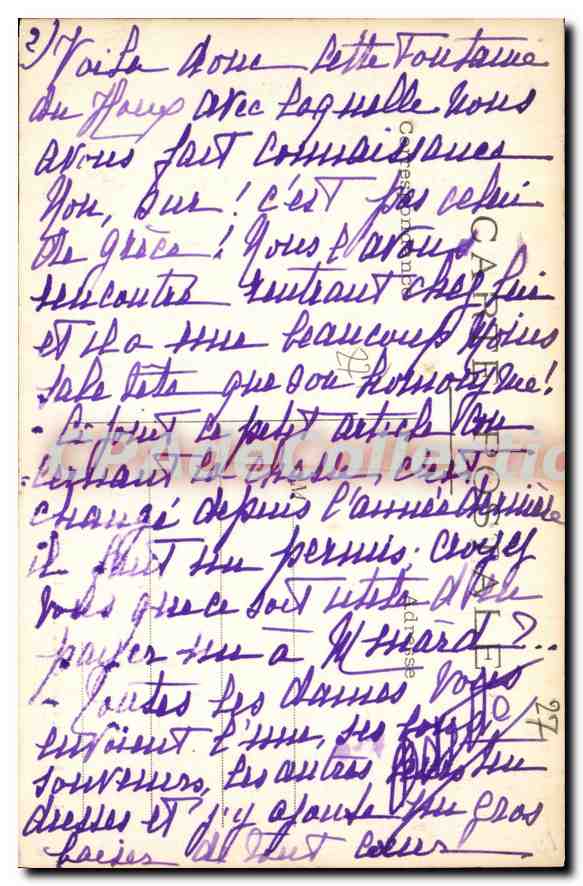 2) Voila donc cette Fontaine
du Houx avec laquelle nous
avons fait connaissance
Non, sur! c'est pas celui
de grèce! Nous l'avons
rencontré rentrant chez lui
et il a une beaucoup moins
sale tête que son homonyme!
- Ci joint ce petit article con
cernant la chasse, c'est
changé depuis l'année dernière
il faut un permis. Croyez
vous que ce soit utile d'en
payer un à Menard?..
- Toutes les dames vous
envoient l'une, ses bons
souvenirs, les autres
et j'y ajoute un gros
baiser de tout coeur
CARTE POSTALE
Correspondance
Adresse
27
27
CPArdeCollection